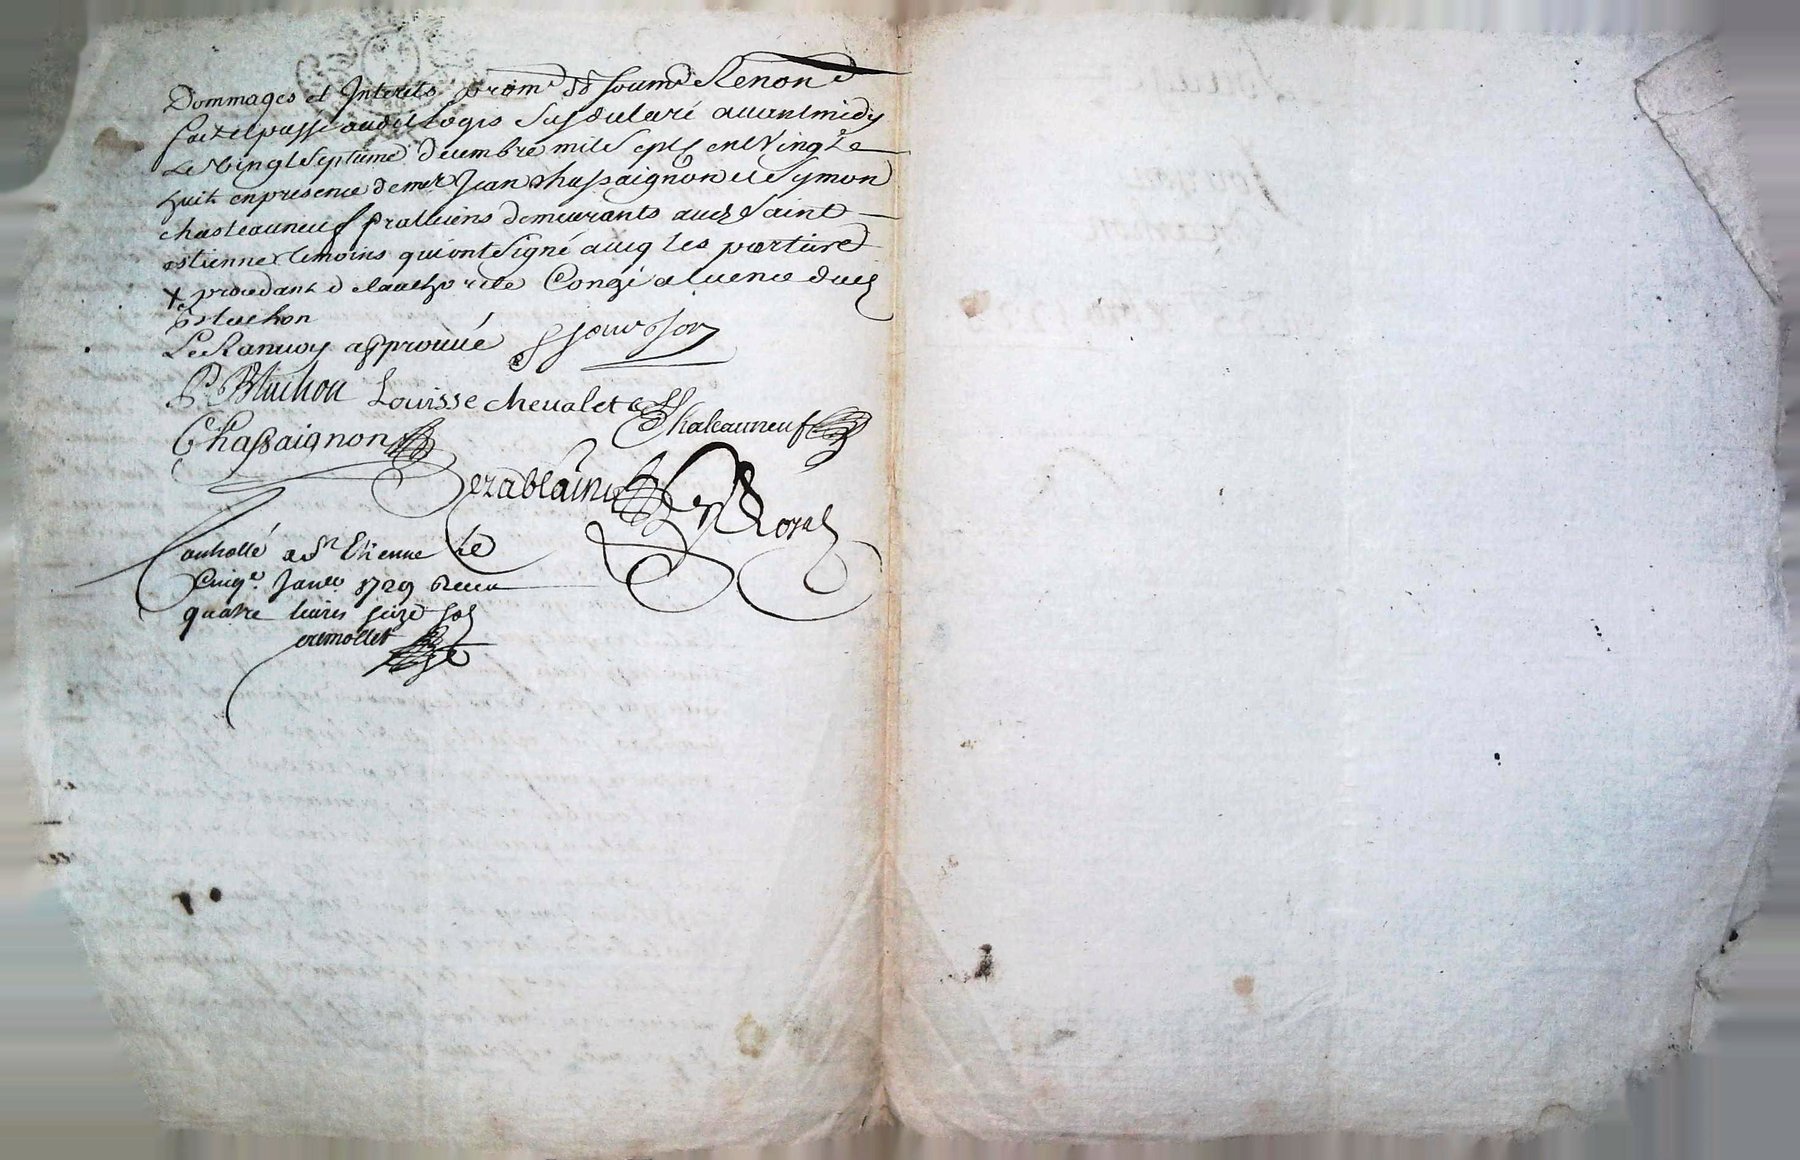 Dommages et Interets prom^s soum^s Renon^d
fait et passé audit logis susdeclaré auant midy
Le Vingt Septieme decembre mil sept cent Vingt
huit en presence de m^er Jean Chassaignon et Symon
chasteauneuf praticiens demeurants aud Saint
estienne temoins qui ont Signé aueq les parties
x procedant de lauthorité Congé et licence dud
Bluchon
Le Ranuoy approuué J Jourjon
P Bluchon Louisse cheualet Chateauneuf
Chassaignon
Royal
Controllé a S^t Etienne le
Cinq^e Janu^er 1729 Receu
quatre liures seize sols